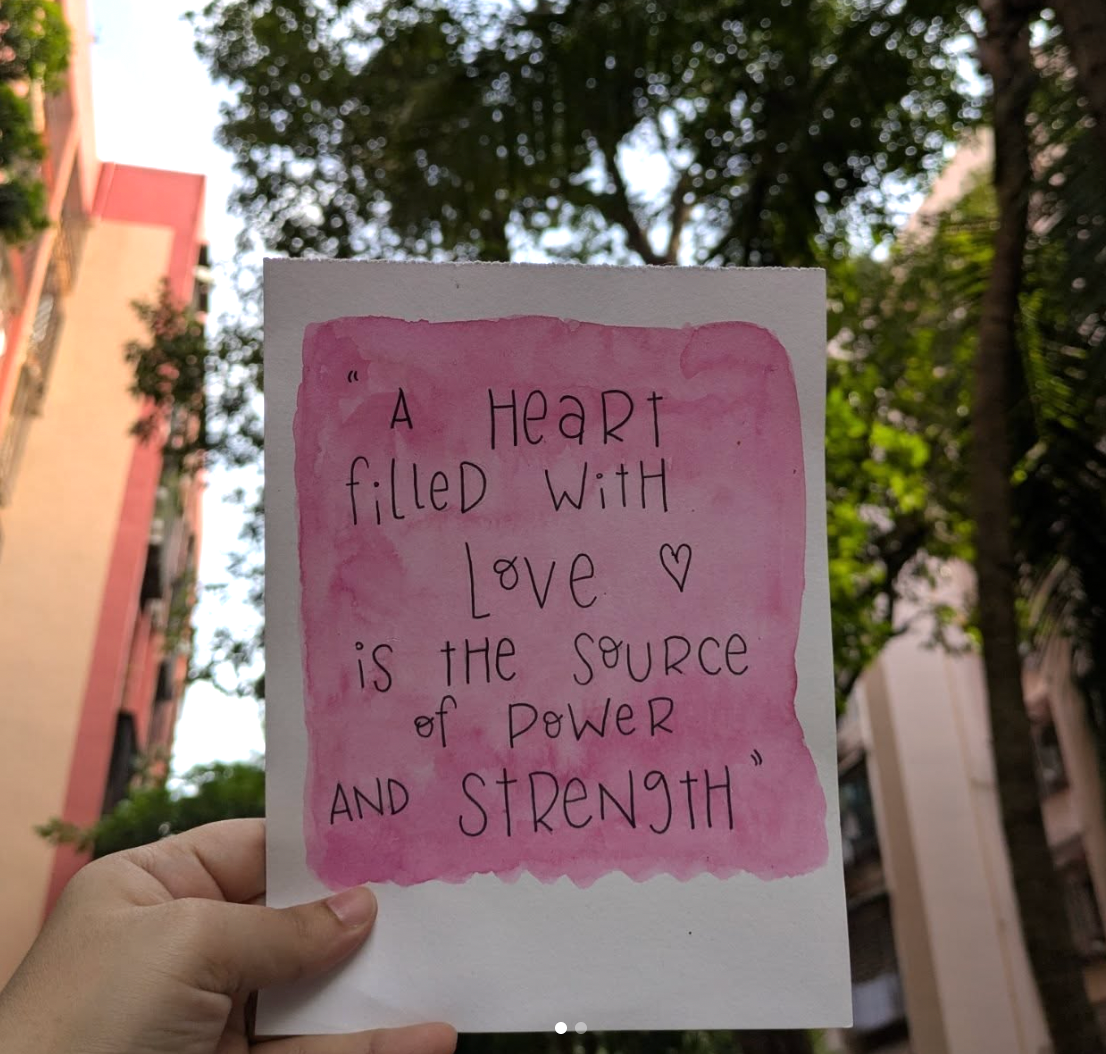 “A HeaRt
filleD WitH
Love ♡
is tHe SouRce
of PoWeR
AND StReNgtH”